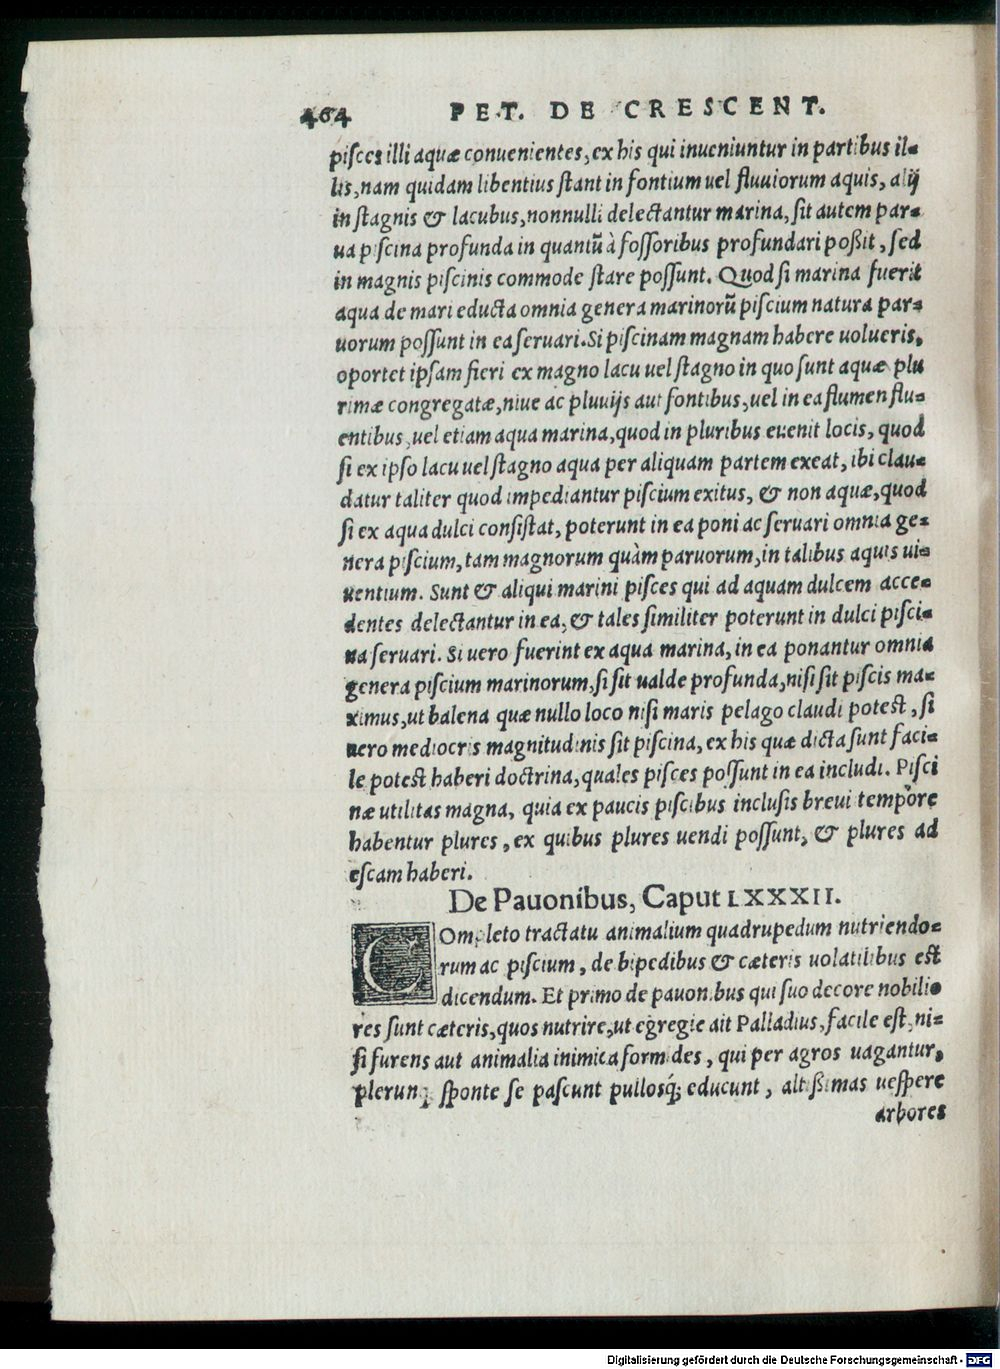 464 PET. DE CRESCENT.
pisces illi aquæ conuenientes, ex his qui inueniuntur in partibus il-
lis, nam quidam libentius stant in fontium uel fluuiorum aquis, alij
in stagnis & lacubus, nonnulli delectantur marina, sit autem par-
ua piscina profunda in quantũ à fossoribus profundari poßit, sed
in magnis piscinis commode stare possunt. Quod si marina fuerit
aqua de mari educta omnia genera marinorũ piscium natura par-
uorum possunt in ea seruari. Si piscinam magnam habere uolueris,
oportet ipsam fieri ex magno lacu uel stagno in quo sunt aquæ plu
rimæ congregatæ, niue ac pluuijs aut fontibus, uel in ea flumen flu-
entibus, uel etiam aqua marina, quod in pluribus euenit locis, quod
si ex ipso lacu uel stagno aqua per aliquam partem exeat, ibi clau-
datur taliter quod impediantur piscium exitus, & non aquæ, quod
si ex aqua dulci consistat, poterunt in ea poni ac seruari omnia ge-
nera piscium, tam magnorum quàm paruorum, in talibus aquis ui-
uentium. Sunt & aliqui marini pisces qui ad aquam dulcem acce-
dentes delectantur in ea, & tales similiter poterunt in dulci pisci-
na seruari. Si uero fuerint ex aqua marina, in ea ponantur omnia
genera piscium marinorum, si sit ualde profunda, nisi sit piscis ma-
ximus, ut balena quæ nullo loco nisi maris pelago claudi potest, si
uero mediocris magnitudinis sit piscina, ex his quæ dicta sunt faci-
le potest haberi doctrina, quales pisces possunt in ea includi. Pisci
næ utilitas magna, quia ex paucis piscibus inclusis breui tempore
habentur plures, ex quibus plures uendi possunt, & plures ad
escam haberi.
De Pauonibus, Caput LXXXII.
COmpleto tractatu animalium quadrupedum nutriendo-
rum ac piscium, de bipedibus & cæteris uolatilibus est
dicendum. Et primo de pauonibus qui suo decore nobilio
res sunt cæteris, quos nutrire, ut egregie ait Palladius, facile est, ni-
si furens aut animalia inimica formides, qui per agros uagantur,
plerunq; sponte se pascunt pullosq́; educunt, altißimas uespere
arbores
Digitalisierung gefördert durch die Deutsche Forschungsgemeinschaft - DFG